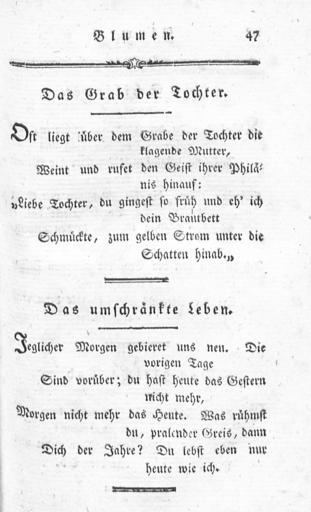 Blumen. 47
Das Grab der Tochter.
Oft liegt über dem Grabe der Tochter die
klagende Mutter,
Weint und rufet den Geist ihrer Philä-
nis hinauf:
„Liebe Tochter, du gingest so früh und eh' ich
dein Brautbett
Schmückte, zum gelben Strom unter die
Schatten hinab.„
Das umschränkte Leben.
Jeglicher Morgen gebieret uns neu. Die
vorigen Tage
Sind vorüber; du hast heute das Gestern
nicht mehr,
Morgen nicht mehr das Heute. Was rühmst
du, pralender Greis, dann
Dich der Jahre? Du lebst eben nur
heute wie ich.